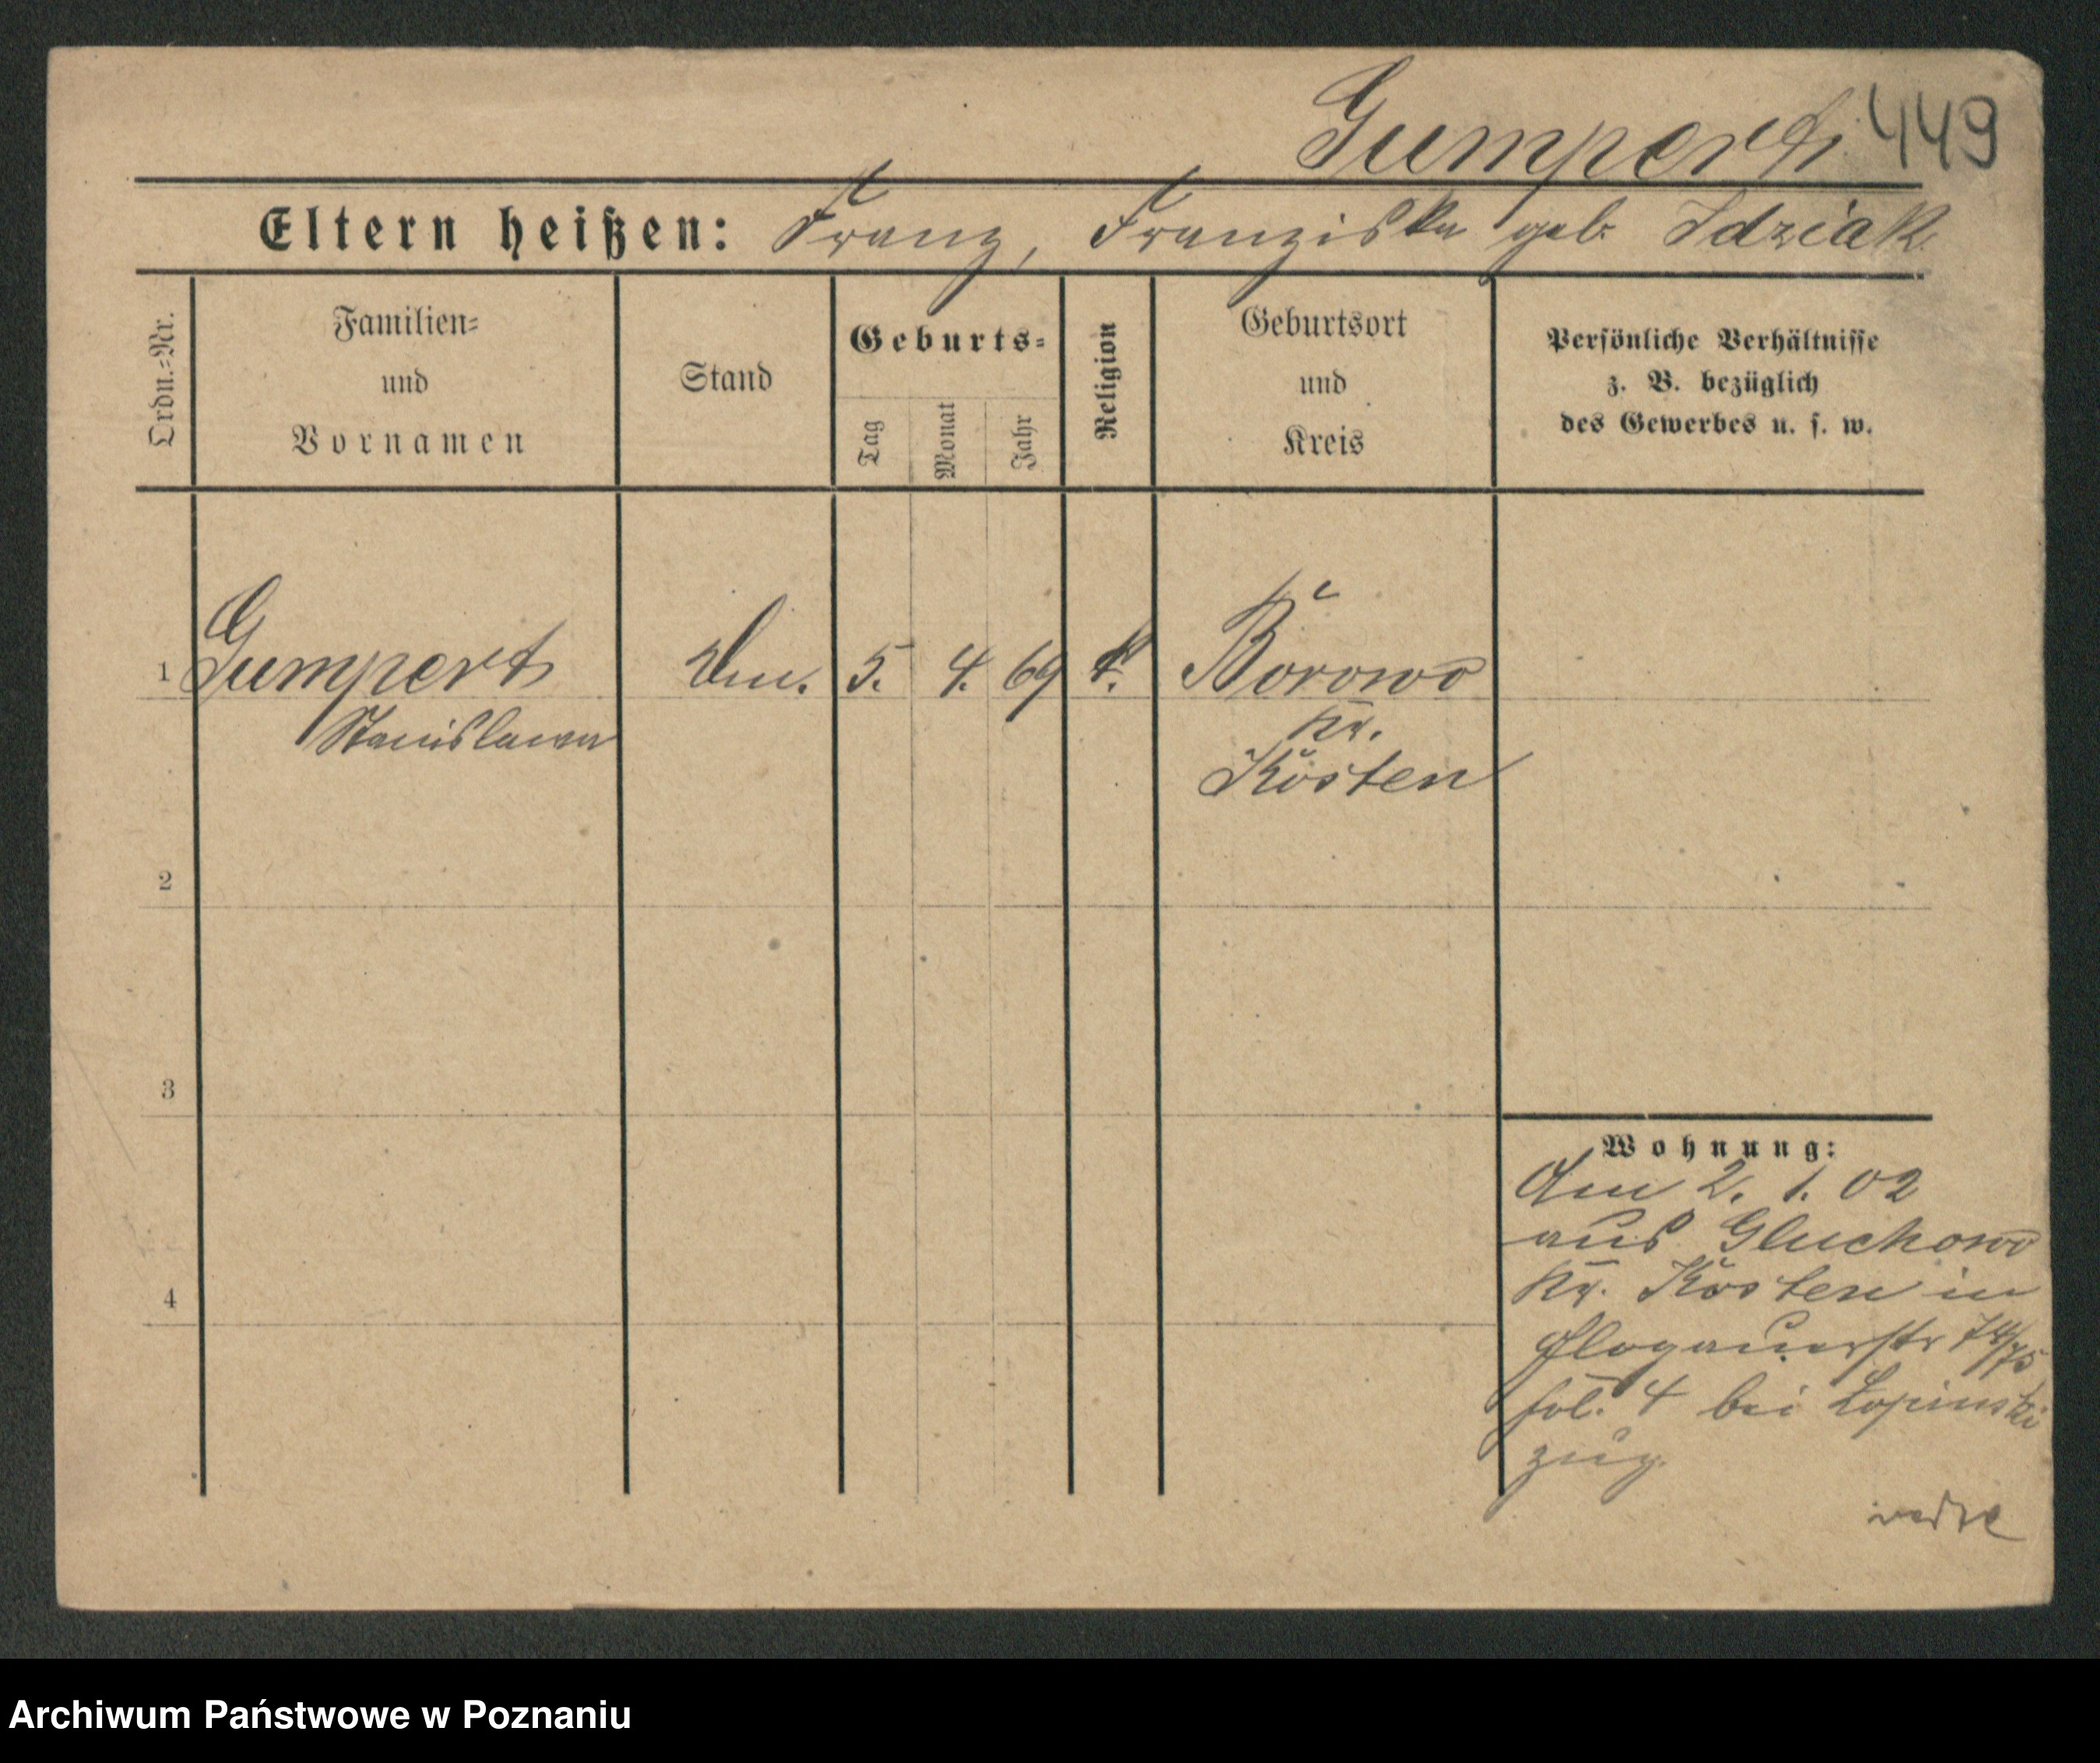 Gumpert 449
Eltern heißen: Franz, Franziska geb. Idziak
Ordn.=Nr.
Familien=
und
Vornamen
Stand
Geburts=
Tag
Monat
Jahr
Religion
Geburtsort
und
Kreis
Persönliche Verhältnisse
z. B. bezüglich
des Gewerbes u. s. w.
1 Gumpert 5. 4. 69 k. Borowo
Stanislawa Kr.
Kosten
2
3
4
Wohnung:
Am 2. 1. 02
aus Gluchowo
Kr. Kosten in
Glogauerstr 74/75
bei Lopinski
zug.
Archiwum Państwowe w Poznaniu